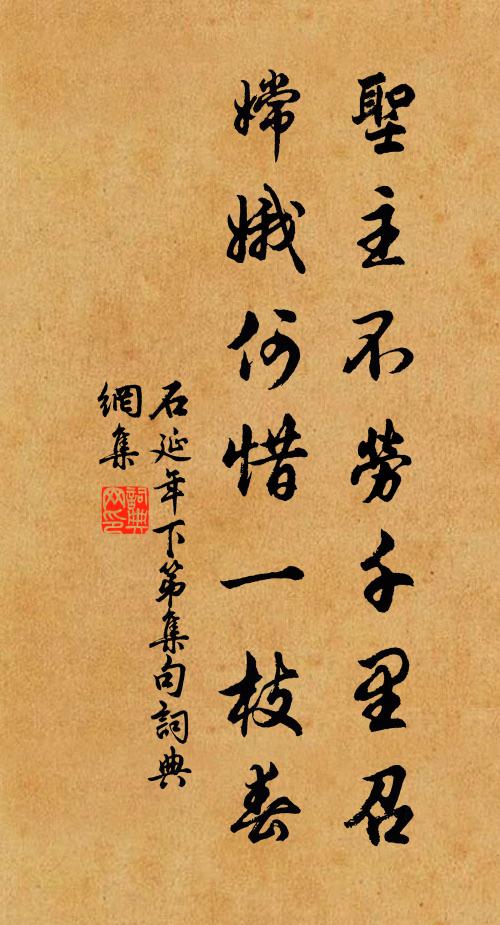 聖主不勞千里召
嫦娥何惜一枝春
石延年下第集句詞典
網集
詞典
网印